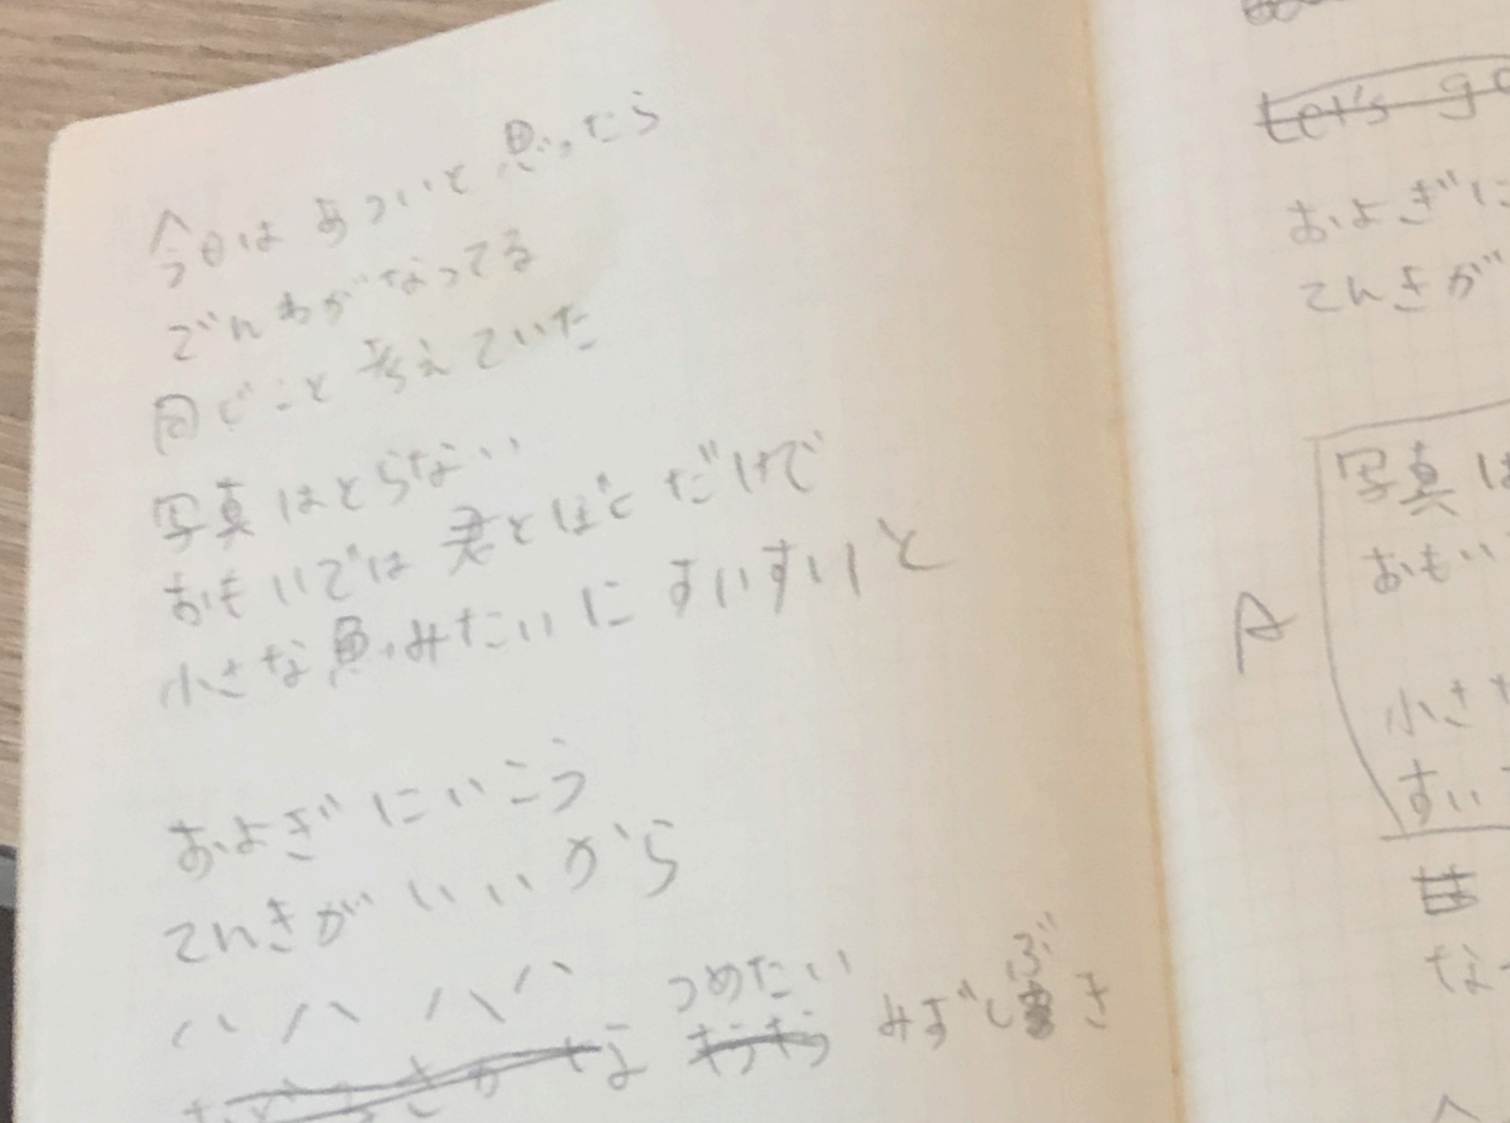 今日はあついと思ったら
でんわがなってる
同じこと考えていた
写真はとらない
おもいでは君とぼくだけで
小さな魚みたいにすいすいと
およぎにいこう
てんきがいいから
ハハハハ
つめたい
な きらきら みずしぶき
Let's go
およぎに
てんきが
A
写真は
おもい
小さな
すい
な